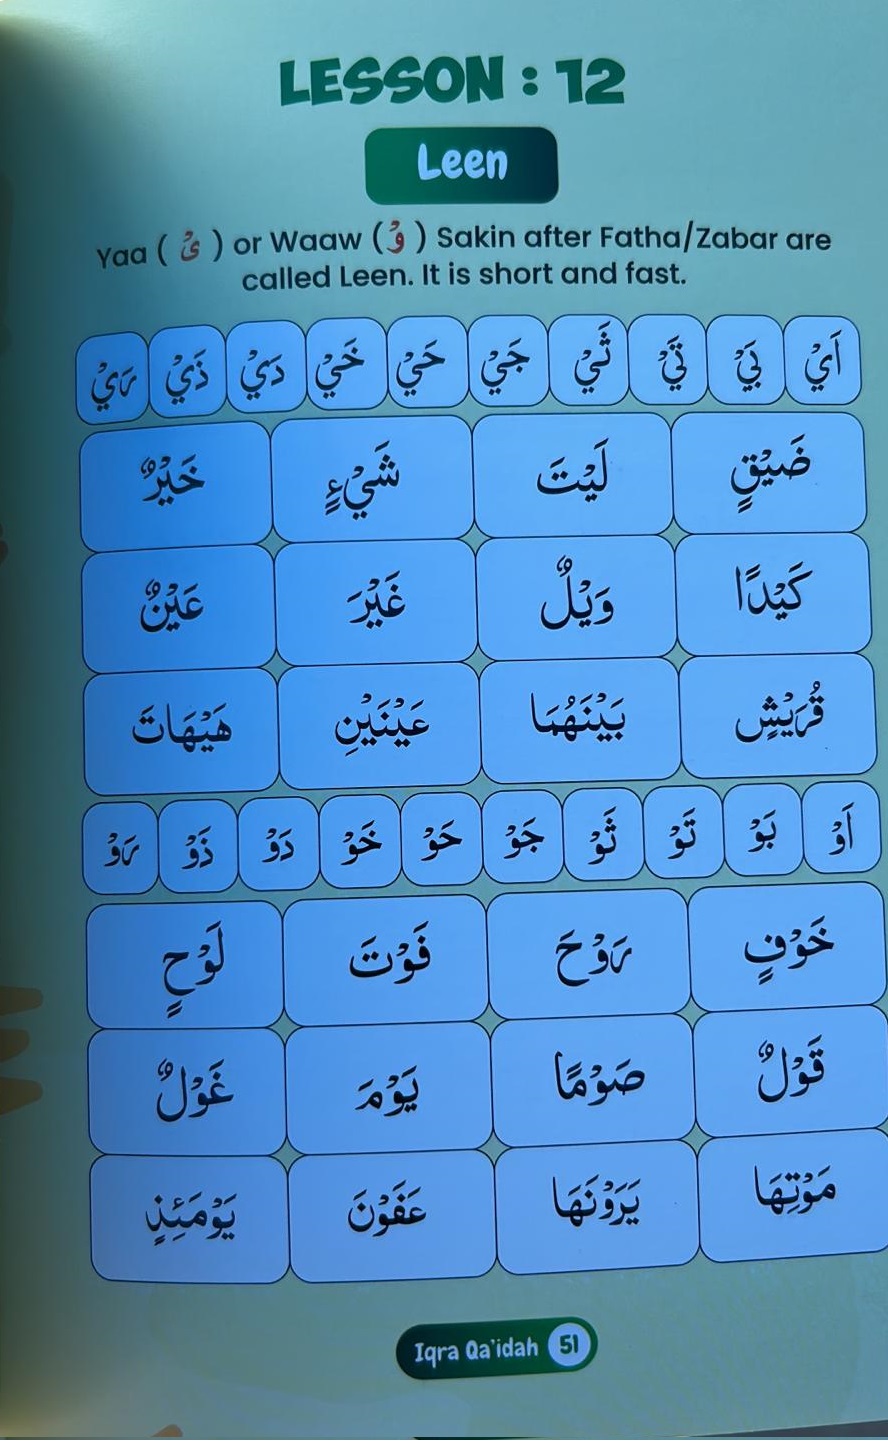 LESSON : 12
Leen
Yaa ( یْ ) or Waaw ( وْ ) Sakin after Fatha/Zabar are
called Leen. It is short and fast.
اَيْ بَيْ تَيْ ثَيْ جَيْ حَيْ خَيْ دَيْ ذَيْ رَيْ
ضَيْقٍ لَيْتَ شَيْءٍ خَيْرٌ
كَيْدًا وَيْلٌ غَيْرَ عَيْنٌ
قُرَيْشٍ بَيْنَهُمَا عَيْنَيْنِ هَيْهَاتَ
اَوْ بَوْ تَوْ ثَوْ جَوْ حَوْ خَوْ دَوْ ذَوْ رَوْ
خَوْفٍ رَوْحَ فَوْتَ لَوْحٍ
قَوْلٌ صَوْمًا يَوْمَ غَوْلٌ
مَوْتِهَا يَرَوْنَهَا عَفَوْنَ يَوْمَئِذٍ
Iqra Qa'idah 51